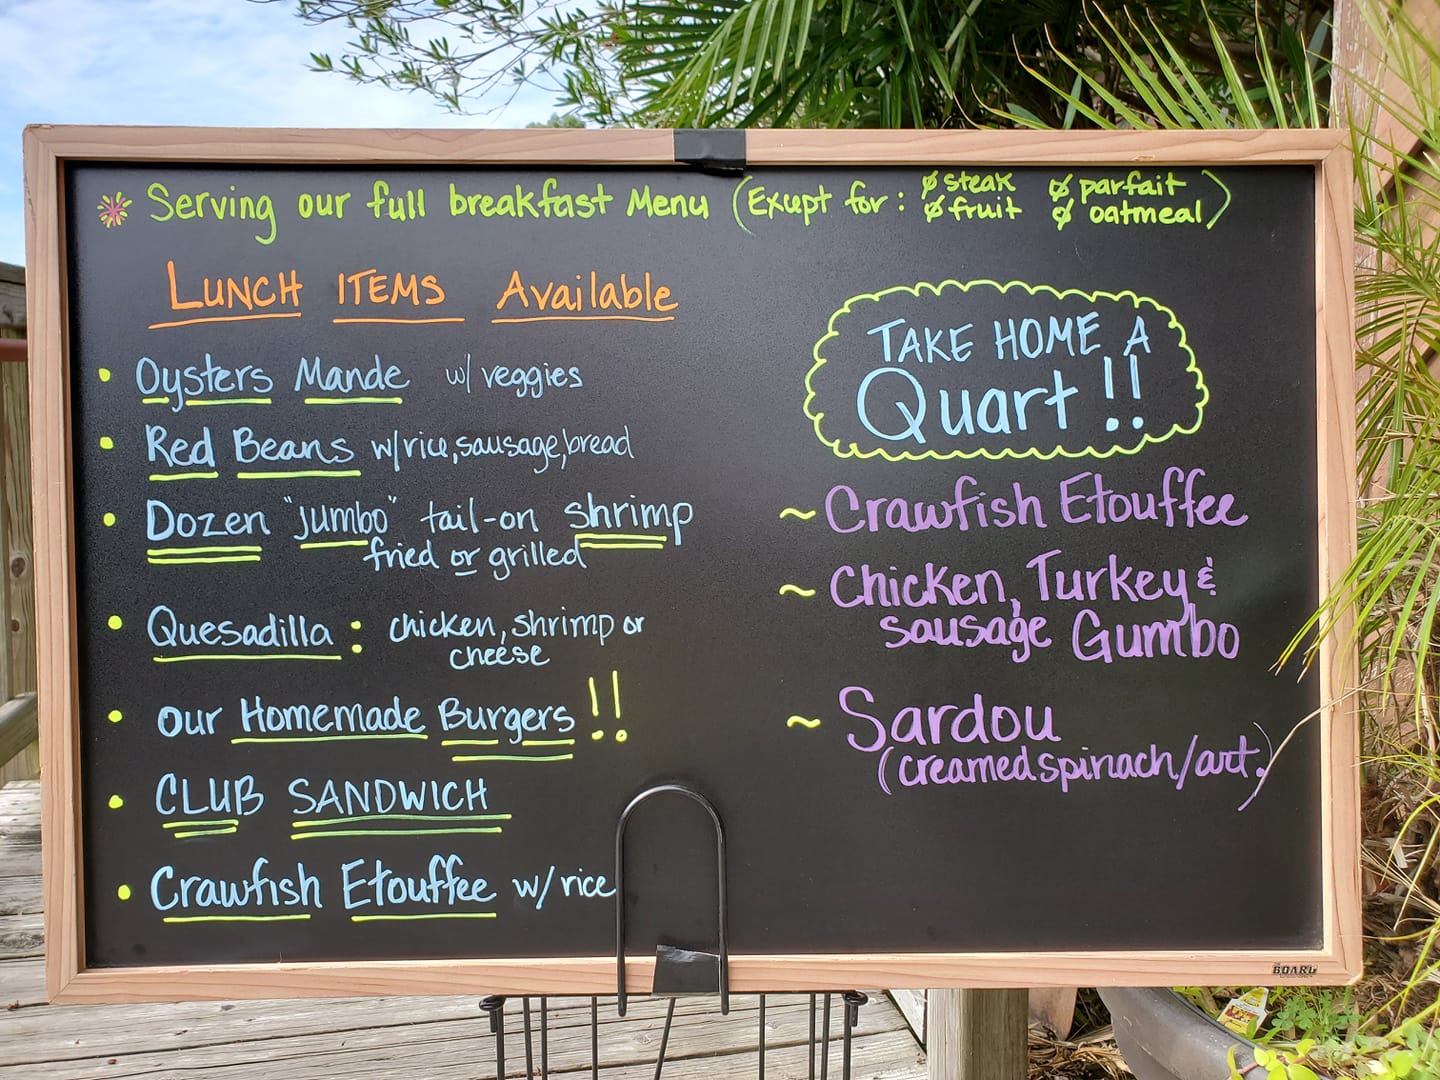 Serving our full breakfast Menu (Except for: ∅ steak ∅ parfait
∅ fruit ∅ oatmeal)
LUNCH ITEMS Available
• Oysters Mande w/ veggies
• Red Beans w/rice, sausage, bread
• Dozen "jumbo" tail-on shrimp
fried or grilled
• Quesadilla: chicken, shrimp or
cheese
• our Homemade Burgers!!
• CLUB SANDWICH
• Crawfish Etouffee w/ rice
TAKE HOME A
Quart!!
~ Crawfish Etouffee
~ Chicken, Turkey &
sausage Gumbo
~ Sardou
(creamed spinach/art.)
BOARD